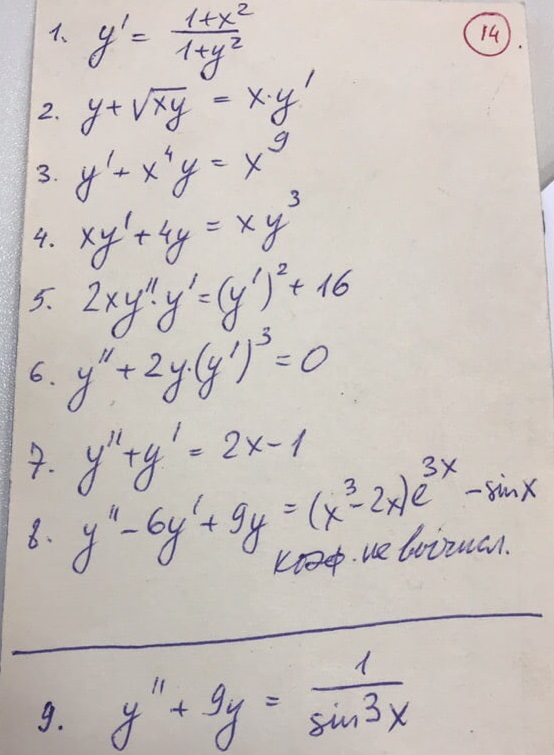 14
1. y' = (1+x²)/(1+y²)
2. y + √(xy) = x·y'
3. y' + x⁴y = x⁹
4. xy' + 4y = xy³
5. 2xy''·y' = (y')² + 16
6. y'' + 2y·(y')³ = 0
7. y'' + y' = 2x - 1
8. y'' - 6y' + 9y = (x³ - 2x)e³ˣ - sin x
коэф. не вычисл.
9. y'' + 9y = 1/sin 3x